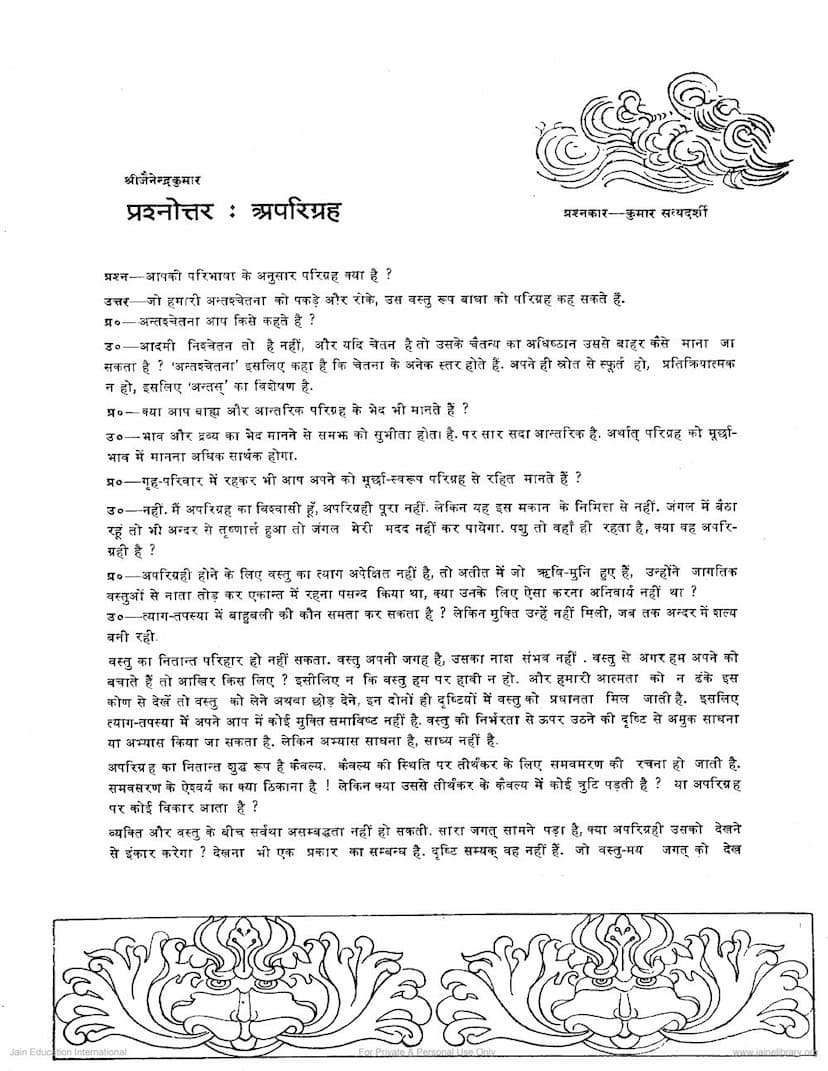 श्रीजैनेन्द्रकुमार
प्रश्नोत्तर : अपरिग्रह
प्रश्नकार—कुमार सत्यदर्शी
प्रश्न—आपकी परिभाषा के अनुसार परिग्रह क्या है ?
उत्तर—जो हमारी अन्तश्चेतना को पकड़े और रोके, उस वस्तु रूप बाधा को परिग्रह कह सकते हैं.
प्र०—अन्तश्चेतना आप किसे कहते है ?
उ०—आदमी निश्चेतन तो है नहीं, और यदि चेतन है तो उसके चैतन्य का अधिष्ठान उससे बाहर कैसे माना जा
सकता है ? ‘अन्तश्चेतना’ इसलिए कहा है कि चेतना के अनेक स्तर होते हैं. अपने ही स्रोत से स्फूर्त हो, प्रतिक्रियात्मक
न हो, इसलिए ‘अन्तस्’ का विशेषण है.
प्र०—क्या आप बाह्य और आन्तरिक परिग्रह के भेद भी मानते हैं ?
उ०—भाव और द्रव्य का भेद मानने से समझ को सुभीता होता है. पर सार सदा आन्तरिक है. अर्थात् परिग्रह को मूर्छा-
भाव में मानना अधिक सार्थक होगा.
प्र०—गृह-परिवार में रहकर भी आप अपने को मूर्छा-स्वरूप परिग्रह से रहित मानते हैं ?
उ०—नहीं. मैं अपरिग्रह का विश्वासी हूँ, अपरिग्रही पूरा नहीं. लेकिन यह इस मकान के निमित्त से नहीं. जंगल में बैठा
रहूं तो भी अन्दर से तृष्णार्त्त हुआ तो जंगल मेरी मदद नहीं कर पायेगा. पशु तो वहाँ ही रहता है, क्या वह अपरि-
ग्रही है ?
प्र०—अपरिग्रही होने के लिए वस्तु का त्याग अपेक्षित नहीं है, तो अतीत में जो ऋषि-मुनि हुए हैं, उन्होंने जागतिक
वस्तुओं से नाता तोड़ कर एकान्त में रहना पसन्द किया था, क्या उनके लिए ऐसा करना अनिवार्य नहीं था ?
उ०—त्याग-तपस्या में बाहुबली की कौन समता कर सकता है ? लेकिन मुक्ति उन्हें नहीं मिली, जब तक अन्दर में शल्य
बनी रही.
वस्तु का नितान्त परिहार हो नहीं सकता. वस्तु अपनी जगह है, उसका नाश संभव नहीं . वस्तु से अगर हम अपने को
बचाते हैं तो आखिर किस लिए ? इसीलिए न कि वस्तु हम पर हावी न हो. और हमारी आत्मता को न ढंके इस
कोण से देखें तो वस्तु को लेने अथवा छोड़ देने, इन दोनों ही दृष्टियों में वस्तु को प्रधानता मिल जाती है. इसलिए
त्याग-तपस्या में अपने आप में कोई मुक्ति समाविष्ट नहीं है. वस्तु की निर्भरता से ऊपर उठने की दृष्टि से अमुक साधना
या अभ्यास किया जा सकता है. लेकिन अभ्यास साधना है, साध्य नहीं है.
अपरिग्रह का नितान्त शुद्ध रूप है कैवल्य. कैवल्य की स्थिति पर तीर्थंकर के लिए समवमरण की रचना हो जाती है.
समवसरण के ऐश्वर्य का क्या ठिकाना है ! लेकिन क्या उससे तीर्थंकर के कैवल्य में कोई त्रुटि पड़ती है ? या अपरिग्रह
पर कोई विकार आता है ?
व्यक्ति और वस्तु के बीच सर्वथा असम्बद्धता नहीं हो सकती. सारा जगत् सामने पड़ा है, क्या अपरिग्रही उसको देखने
से इंकार करेगा ? देखना भी एक प्रकार का सम्बन्ध है. दृष्टि सम्यक् वह नहीं हैं. जो वस्तु-मय जगत् को देख
Jain Education International
For Private & Personal Use Only
www.jainelibrary.org